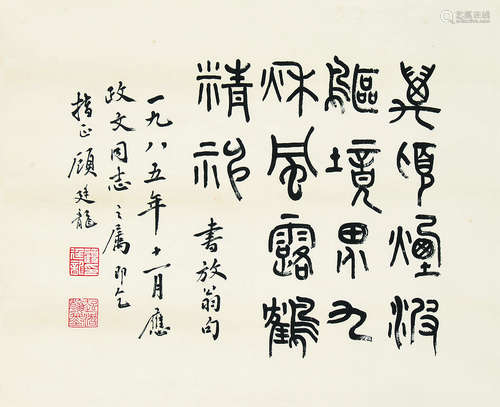 萬頃煙波
鷗境界九
秋風露鶴
精神
書放翁句
一九八五年十一月應
政文同志之屬即乞
指正顧廷龍